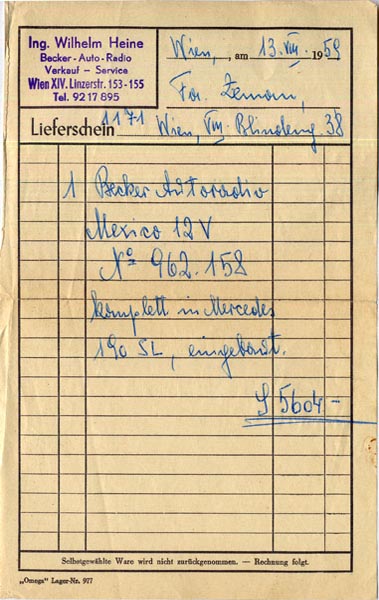 Ing. Wilhelm Heine
Becker-Auto-Radio
Verkauf - Service
Wien XIV. Linzerstr. 153-155
Tel. 92 17 895
Wien, , am 13. VIII. 1959
Fa. Zemann,
Lieferschein 1171 Wien, VIII. Blindeng. 38
1 Becker Autoradio
Mexico 12 V
No 962.158
komplett in Mercedes
190 SL, eingebaut.
S 5604-
Selbstgewählte Ware wird nicht zurückgenommen. — Rechnung folgt.
„Omega" Lager-Nr. 977